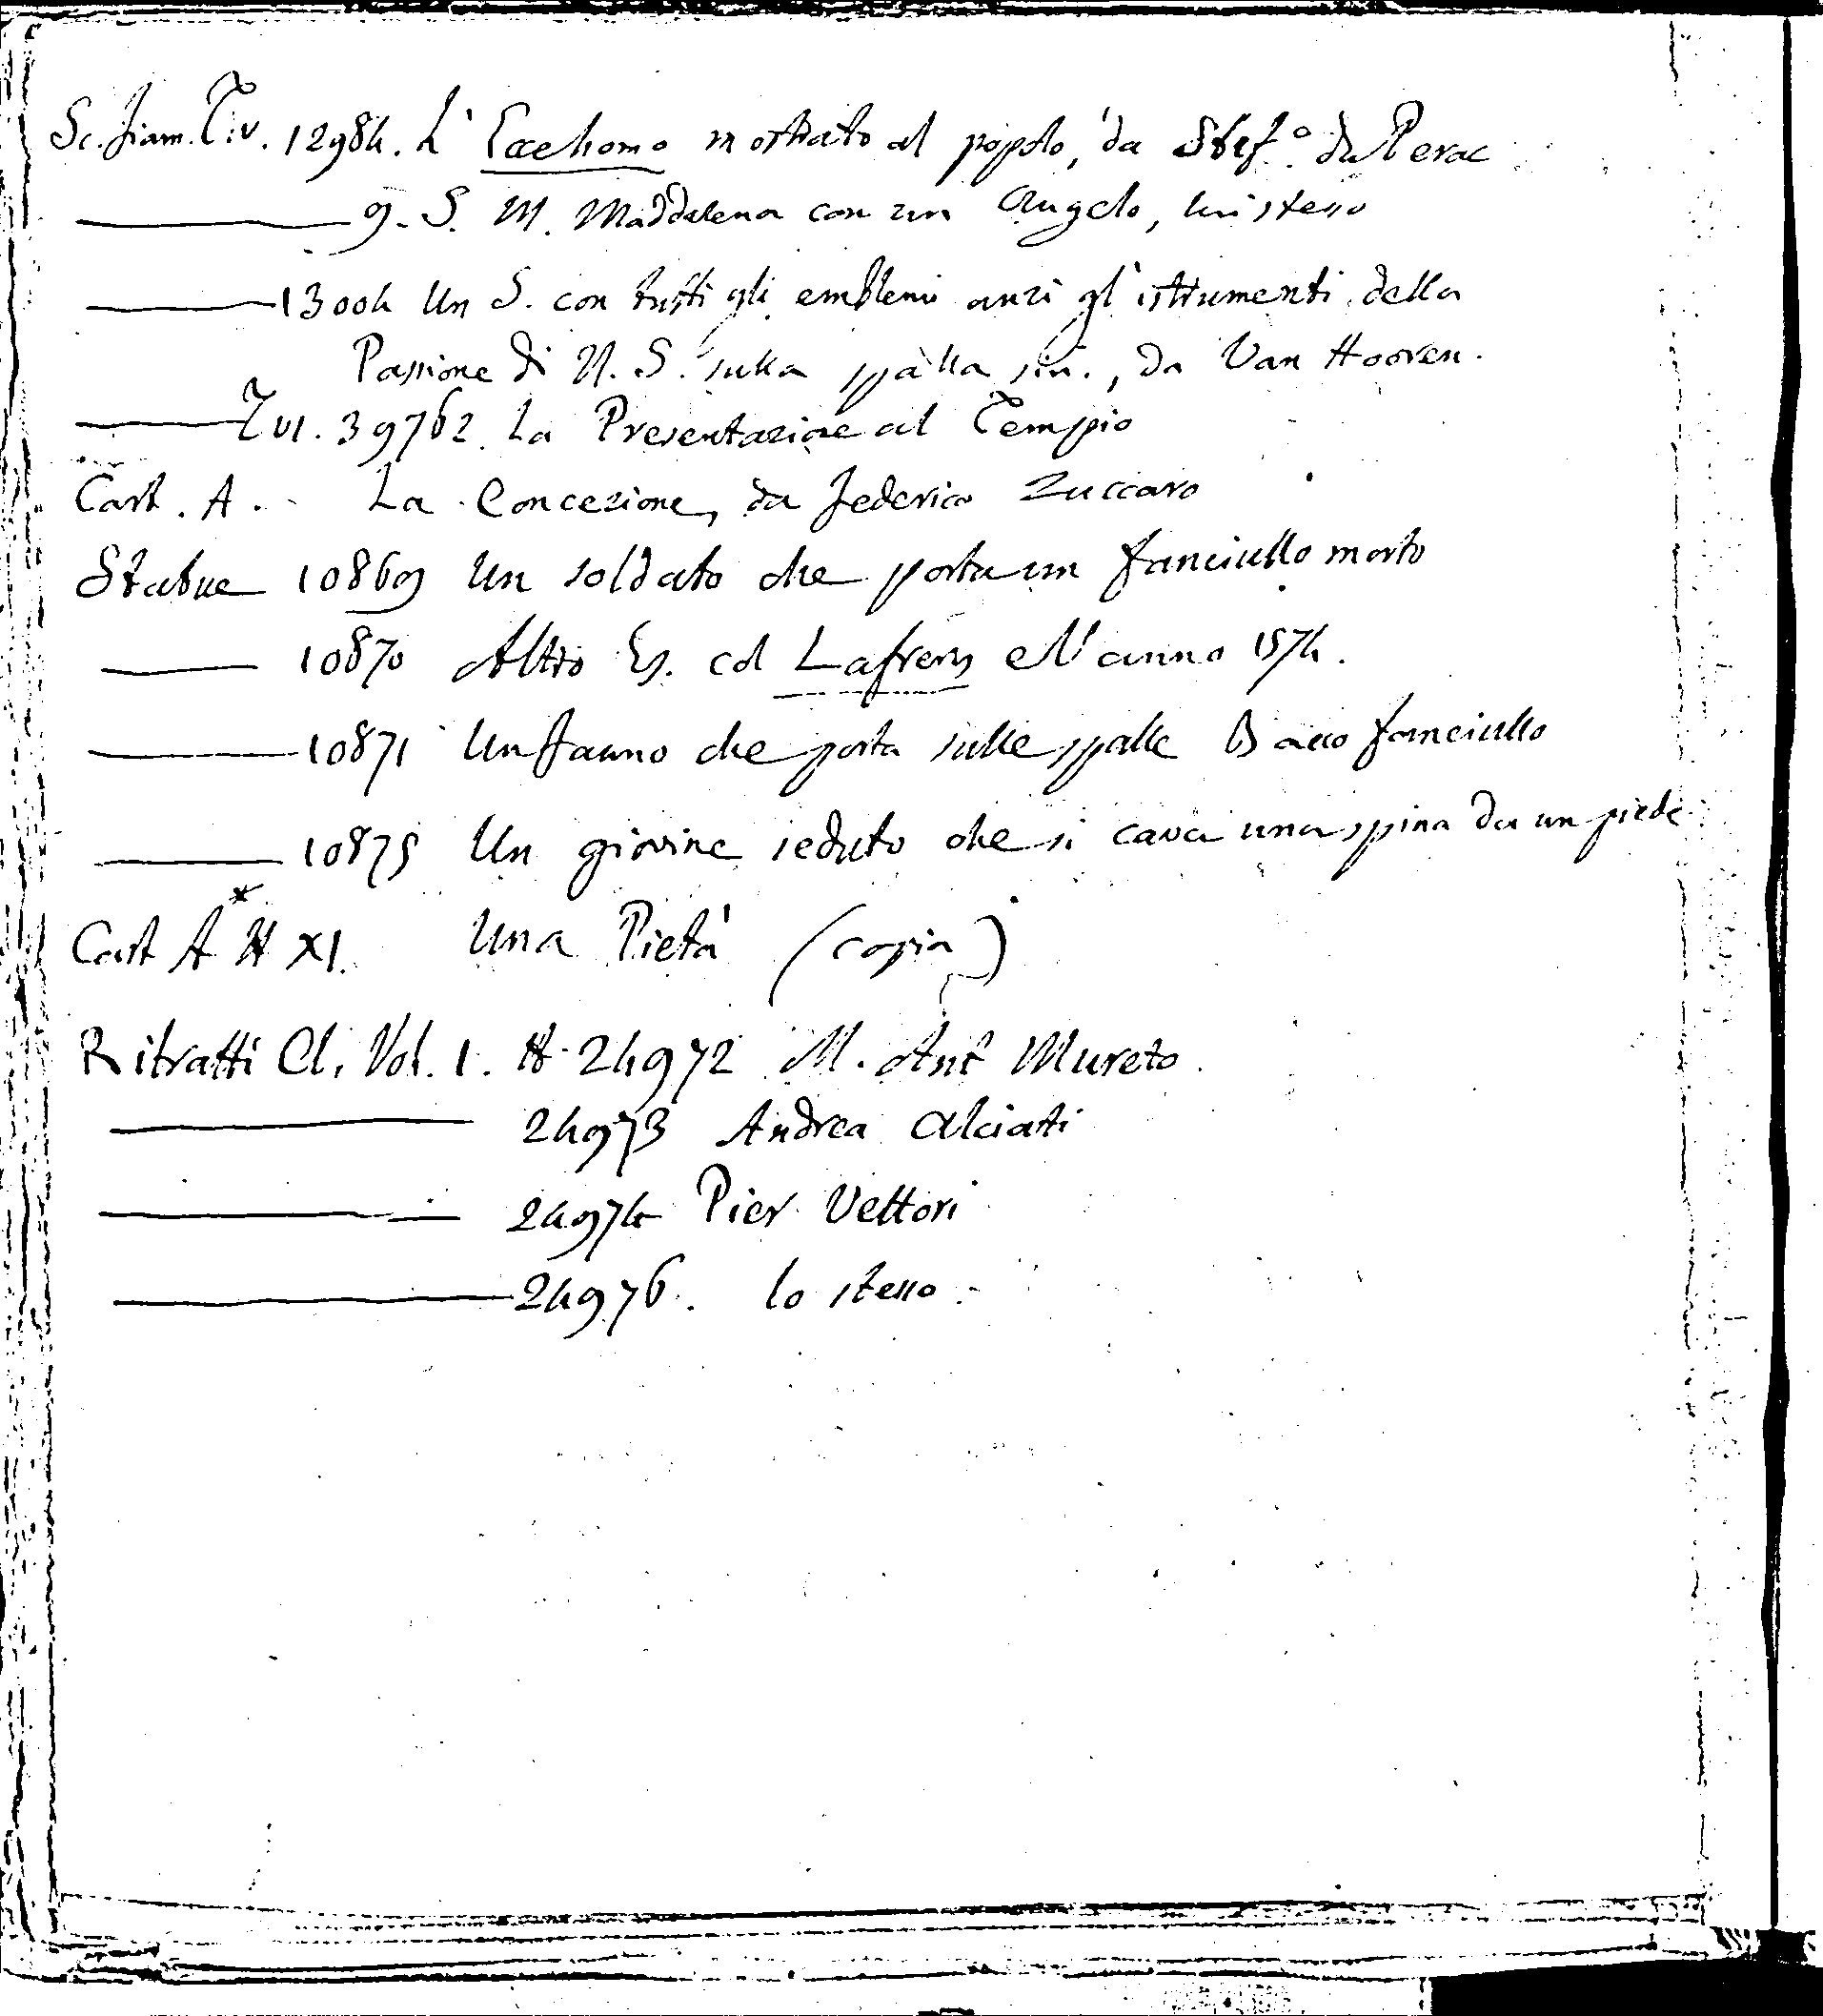 Sc. fiam. T. IV. 12984. L'Eccehomo mostrato al popolo, da Stef.o du Perac
——— 9. S. M. Maddalena con un Angelo, lui stesso
——— 13004 Un S. con tutti gli emblemi anzi gl'istrumenti della
Passione di N. S. sulla spalla sin., da Van Hooven.
——— T VI. 39762. La Presentazione al Tempio
Cart. A. La Concezione, da Federico Zuccaro
Statue 10869 Un soldato che porta un fanciullo morto
——— 10870 Altro Es. col Lafrerj e l'anno 1574.
——— 10871 Un fauno che porta sulle spalle Bacco fanciullo
——— 10875 Un giovine seduto che si cava una spina da un piede
Cart A * N XI. Una Pietà (copia)
Ritratti Cl. Vol. 1. N. 24972 M. Ant Mureto.
——— 24973 Andrea Alciati
——— 24974 Pier Vettori
——— 24976. lo stesso.